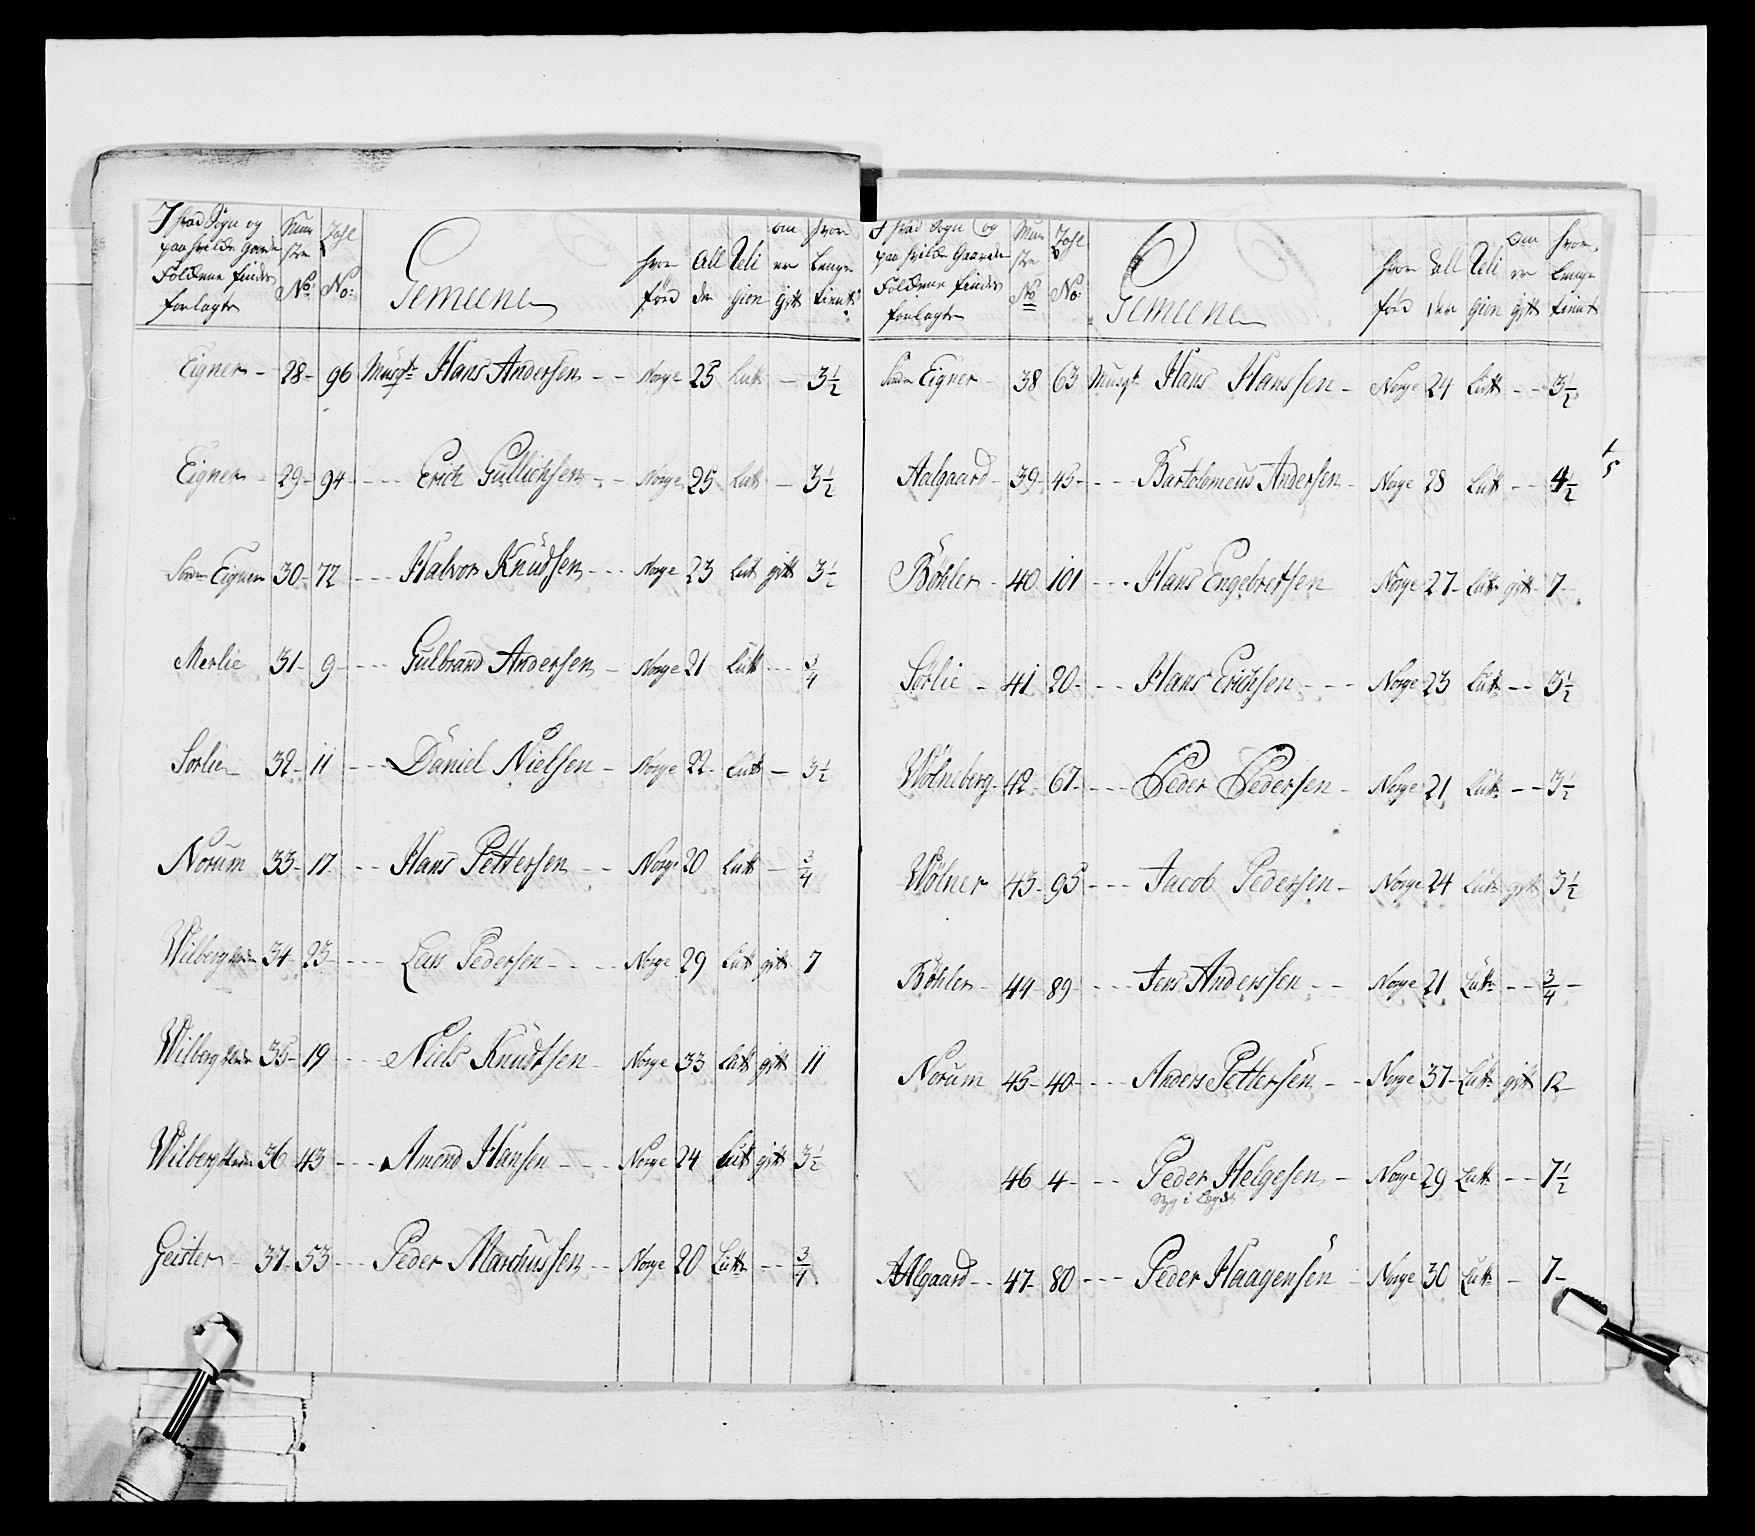 I hvad Sogn og
paa hvilde Gaarde
Foldene findes
forlagte
Mun
stre
No:
Tahl
No:
Gemeene
hvor
förd
All
der
Reli
gion
om
er
Gift
hvor
Lenge
tient:
Eigner - 28 - 96 Musqt: Hans Andersen - - Norge 25 Lutt - 3½
Eigner - 29 - 94 - - - Erich Gullichsen - - Norge 25 Lutt - 3½
Eigner 30 - 72 - - - Halvor Knudsen - - - Norge 23 Lut gift 3½
Merlie 31 - 9 - - - Gulbrand Andersen - Norge 21 Lutt - - - ¾
Sørlie 32 - 11 - - - Daniel Nielsen - Norge 22 - Lutt - 3½
Norum 33 - 17 - - Hans Pettersen - - Norge 20 Lutt - ¾
Wilberg 34 - 23 - - - Lars Pedersen - - - Norge 29 Lutt gift 7
Wilberg 35 - 19 - - - Niels Knudtsen - Norge 33 Lutt gift 11
Wilberg 36 43 - - - Amond Hansen - - - Norge 24 Lutt gift 3½
Geister - 37 - 53 - - - Peder Marchussen - - Norge 20 Lutt - - ¾
I hvad Sogn og
paa hvilde Gaarde
Foldene findes
forlagte
Mun
stre
No
Tahl
No:
Gemeene
hvor
förd
all
der
Reli
gion
om
er
gift
hvor
Lenge
tient
Eigner - 38 63 Musqt: Hans Hanssen - Norge 24 Lutt - - 3½
Aalgaard - 39 - 45 - - - Bartolomeus Andersen - Norge 28 Lutt - - 4½
Böhler - 40 101 - - - Hans Engebretsen Norge 27 - Lutt gift 7 -
Sörlie - 41 20 - - - Hans Erichsen - - - Norge 23 Lutt - - 3½
Wölneberg - 42 - 67 - - - Peder Pedersen - Norge 21 Lutt - - 3½
Wölner 43 - 95 - - - Jacob Pedersen - Norge 24 Lutt gift 3½
Böhler - 44 - 89 - - - Jens Anderssen - - Norge 21 Lutt - - ¾ -
Norum 45 - 40 - - - Anders Pettersen - - Norge 37 - Lutt gift 12 -
46 4 - - - Peder Helgesen - Norge 29 Lutt - - 7½
Syg i Legd
Aalgaard - - 47 - 80 - - - Peder Haagensen - Norge 30 Lutt - 7 -